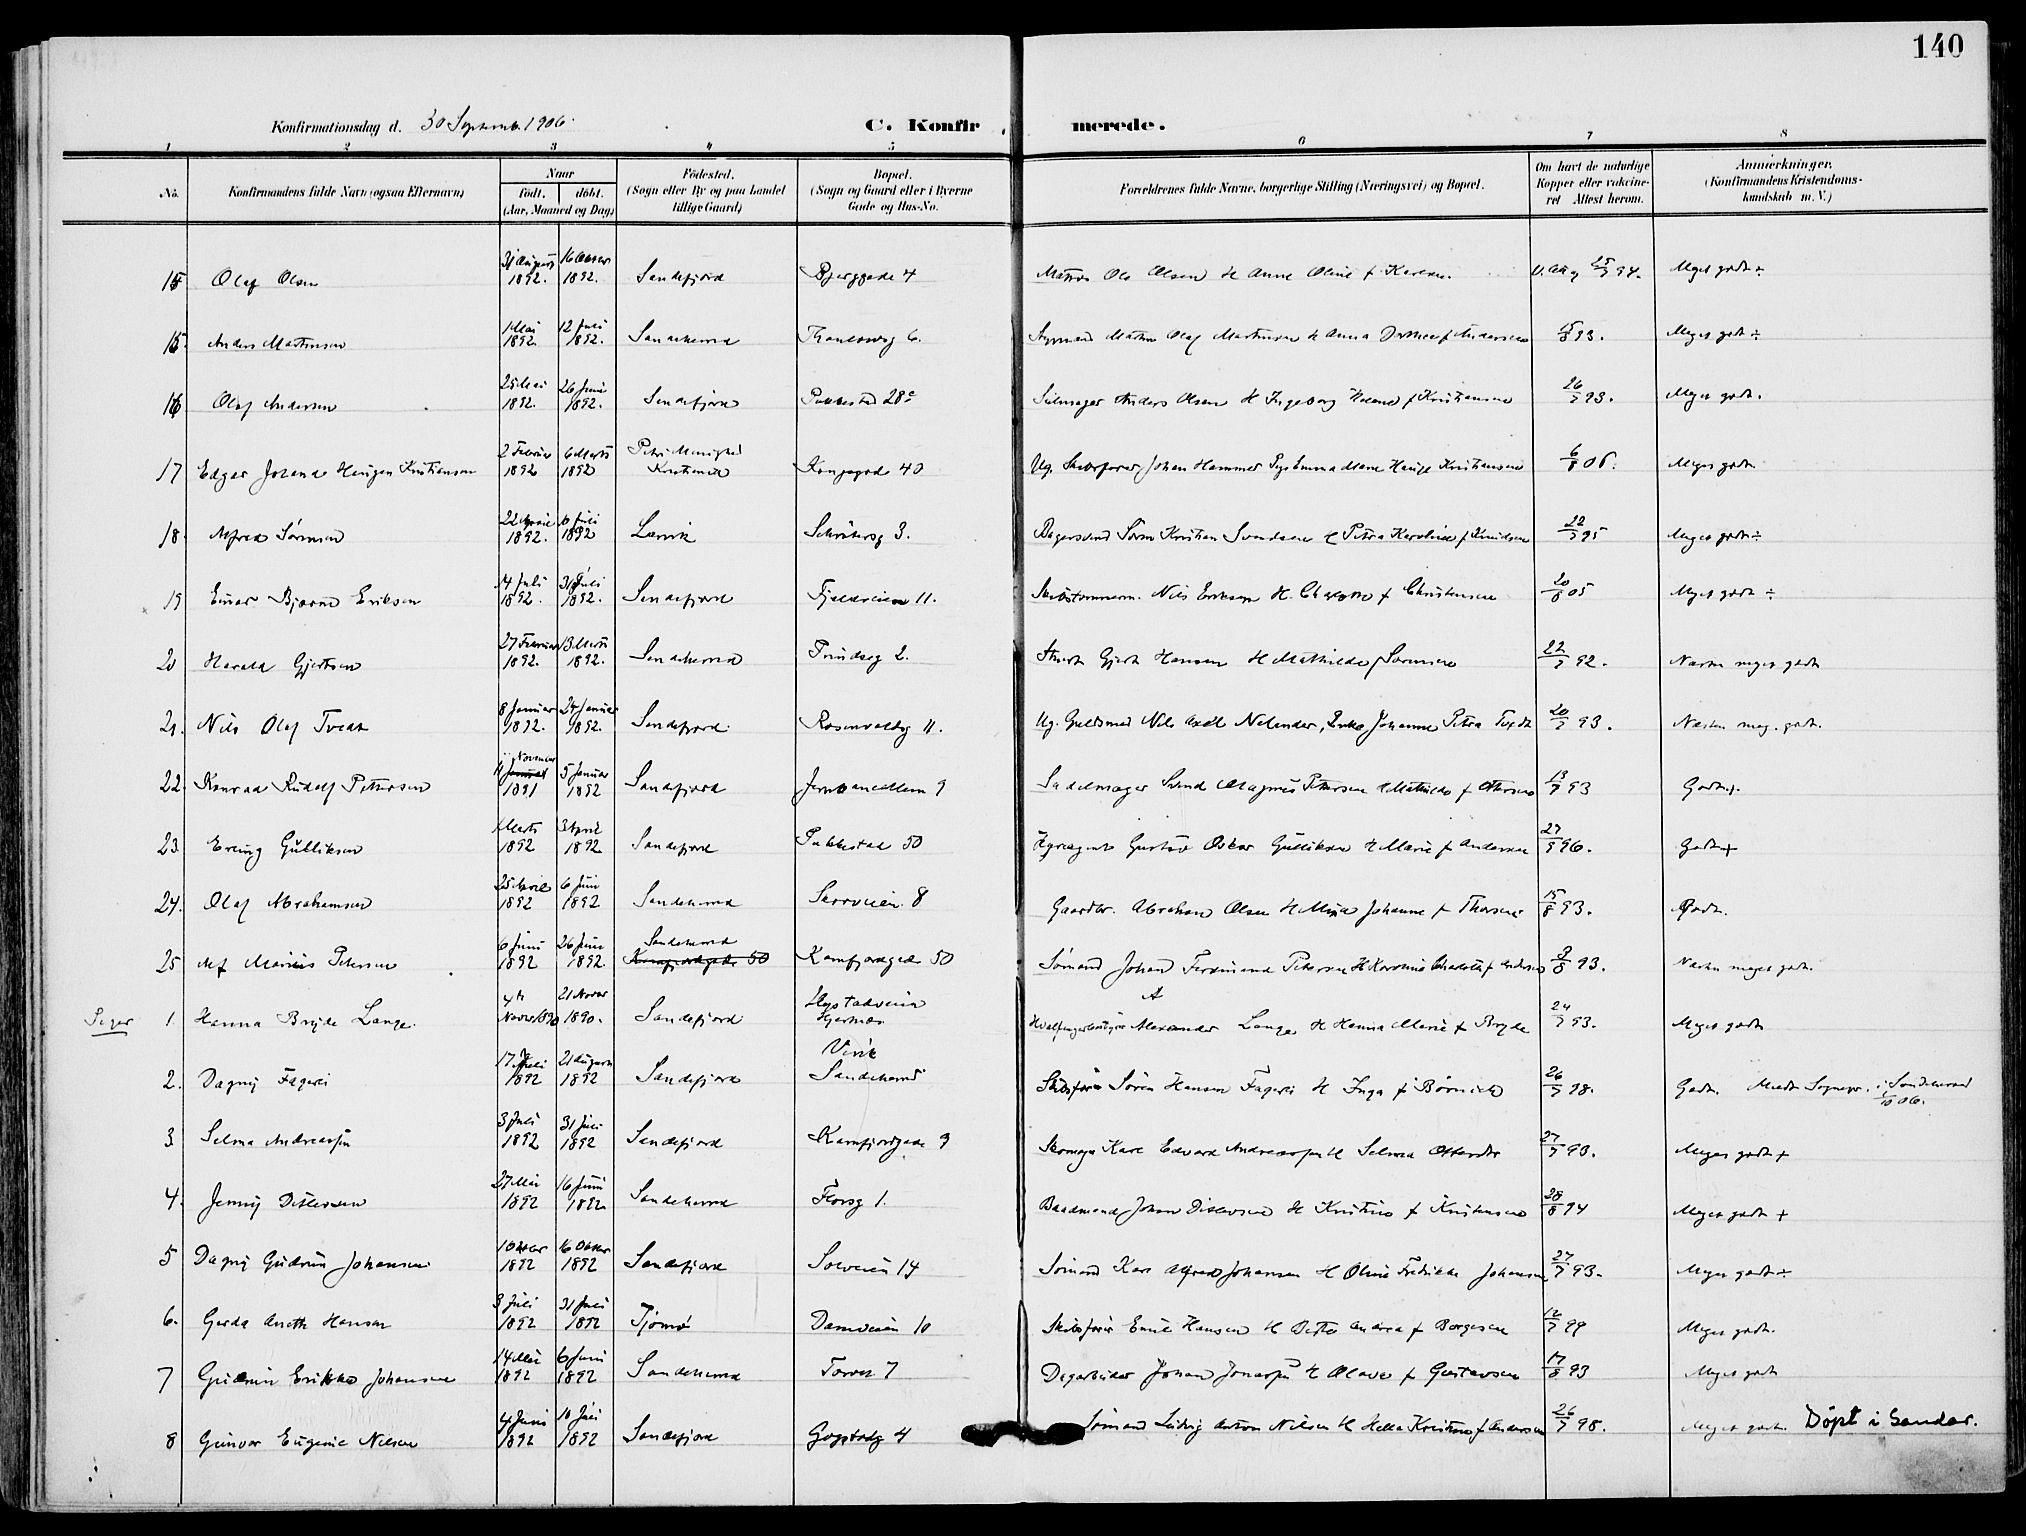 140
Konfirmationsdag d. 30 Septemb. 1906.
C. Konfirmerede.
1 2 3 4 5 6 7 8
No. Konfirmandens fulde Navn (ogsaa Efternavn) Naar født. døbt. (Aar, Maaned og Dag) Fødested. (Sogn eller By og paa Landet tillige Gaard) Bopæl. (Sogn og Gaard eller i Byerne Gade og Hus-No. Forældrenes fulde Navne, borgerlige Stilling (Næringsvei) og Bopæl. Om havt de naturlige Kopper eller vakcineret Attest herom. Anmærkninger. (Konfirmandens Kristendomskundskab m. V.)
15 Olaf Olsen 31 August 1892. 16 Oktober 1892. Sandefjord Bjerggade 4 Matros Ole Olsen H Anne Oline f Karlsen. 94. Meget godt ÷
15 Anders Martinsen 1 Mai 1892. 12 Juli 1892. Sandeherred 6. Styrmand Martin Olaf Martinsen H Anna f Andersen 93. Meget godt ÷
16 Olaf Andersen 25 Mai 1892. 26 Juni 1892. Sandefjord Pukkestad 28 Anders Olsen H Ingeborg f Kristiansen 26/7 93. Meget godt.
17 Edgar Johand Haugen Kristiansen 2 Februar 1892 6 Marts 1892 Petri Menighed Kongsgad 40 Ug. Johan Hammer Pige Emma Marie Kristiansen 6/8 06. Meget godt.
18. Alfred Sørensen 22 April 1892. Juli 1892 Larvik 3. Søren Kristian Svendsen H Petra Karoline f Knudsen 22/7 95 Meget godt ÷
19 Einar Bjarne Eriksen 14 Juli 1892. 31 Juli 1892. Sandefjord Fjeldveien 11. Skibstømmerm. Nils Eriksen H. Charlotte f Christensen 20/8 05 Meget godt ÷
20 Harald Gjertsen 27 Februar 1892. 13 Marts 1892. Sandeherred Prindseg 2. Gjert Hansen H Mathilde f Sørensen 22/7 92. Næsten meget godt
21. Nils Olaf Tvedt 8 Januar 1892. 24 Januar 1892. Sandefjord. Rosenvoldg 11. Ug. Guldsmed Nils Axel Nelander, Enke Johanne Petra Tvedt 20/7 93. Næsten meg. godt.
22. Konrad Rudolf Pettersen 11 November 1891 5 Januar 1892 Sandefjord Jernbanealleen 9 Sadelmager Svend Magnus Petersen H Mathilde f Ottersen 13/7 93 Godt.
23. Erling Gulliksen Marts 1892 3 April 1892 Sandefjord Pukkestad 50 Gustav Oskar Gulliksen H Marie f Andersen 96. Godt +
24. Olaf Abrahamsen 25 April 1892 6 Juni 1892 Sandeherred 8 Gaardbr. Abraham Olsen H Johanne f Thorsen 15/8 93. Godt.
25 Alf Marius Petersen 6 Juni 1892 26 Juni 1892. Sandeherred Kamfjordgade 50 Kamfjordgade 50 Sømand Johan Ferdinand Petersen H Karoline Charlotte f Andersen 3/8 93. Næsten meget godt.
Piger 1. Hanna Bryde Lange. 4de Novbr 1890 21 Novbr 1890. Sandefjord Hystadveien Hjertnes Hvalfangerbestyrer Alexander Lange H Hanna Marie f Bryde 24/7 93. Meget godt
2. Dagny Fagerli 17 Juli 1892 21 August 1892 Sandefjord Virik Sandeherred Skibsfører Søren Hansen Fagerli H Inga f 26/7 98. Godt. Meldt Sognepr. i Sandeherred /10 06.
3 Selma Andreassen 3 Juli 1892 31 Juli 1892 Sandefjord Kamfjordgade 9 Skomager Karl Edvard Andreassen H Selma 27/7 93. Meget godt +
4. Jenny Ditlevsen 27 Mai 1892 16 Juni 1892 Sandeherred Florsg 1. Baadsmand Johan Ditlevsen H Kristine f Kristensen 28/8 94 Meget godt +
5 Dagny Gudrun Johansen 1 Oktober 1892 16 Oktober 1892 Sandefjord Solveien 14 Sømand Karl Alfred Johansen H Oline Fredrikke Johansen 27/7 93. Meget godt ÷
6. Gerda Aneth Hansen 3 Juli 1892 31 Juli 1892 Tjømø Damveien 10 Skibsfører Emil Hansen H Andrea f Borgesen 12/7 99 Meget godt.
7 Gudrun Erikka Johansen 14 Mai 1892 6 Juni 1892 Sandeherred Torvet 7 Dagarbeider Johan H Olava f Gustavsen 17/8 93 Meget godt
8 Gunvor Eugenie Nilsen 4 Juni 1892 10 Juli 1892 Sandefjord Gogstadg 4 Sømand Ludvig Anton Nilsen H Helle Kristine f Andersen 26/7 98. Meget godt. Døpt i Sandar.